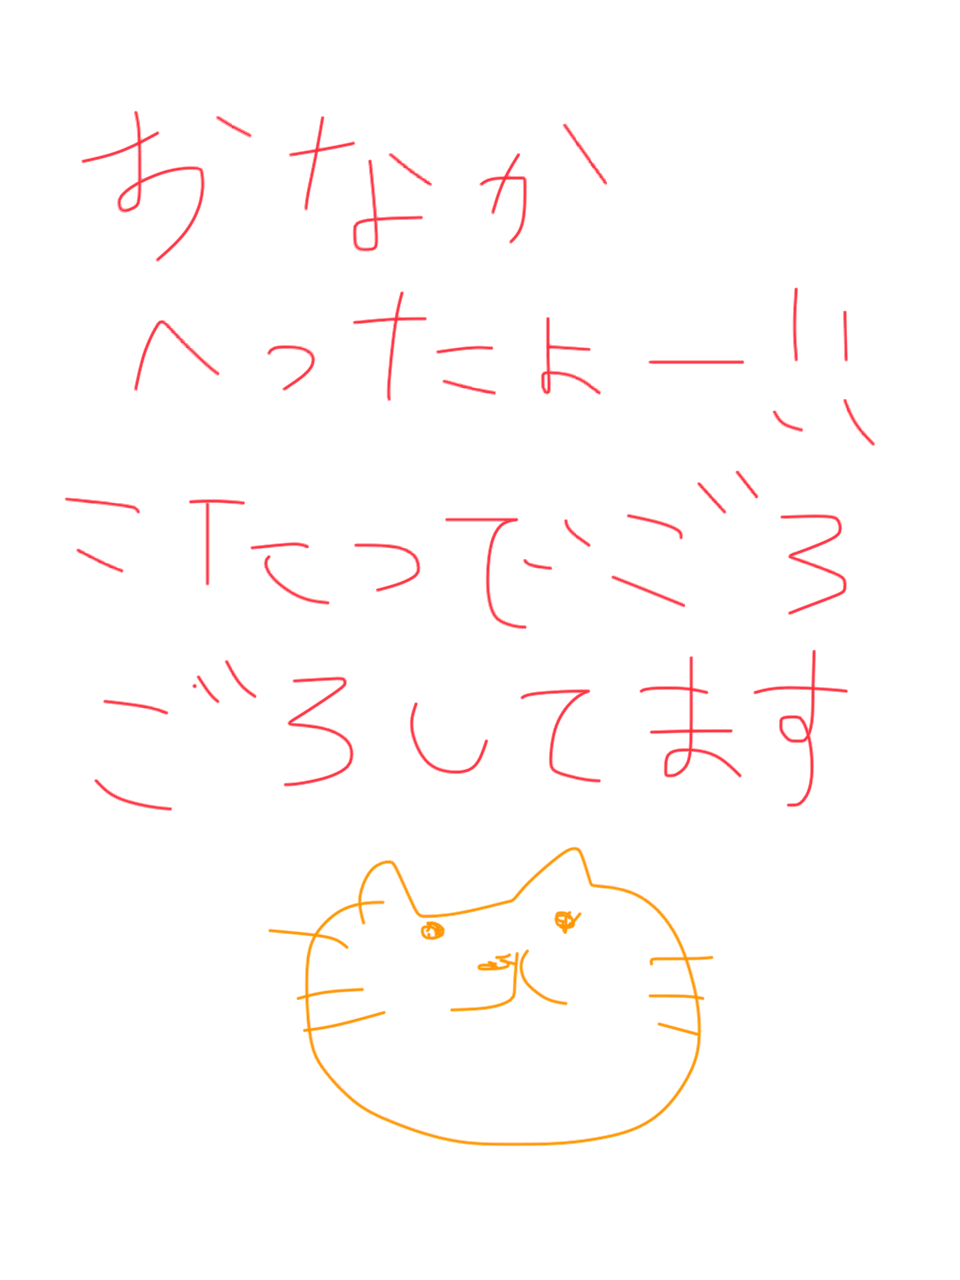 おなか
へったよー!!
こたつでごろ
ごろしてます